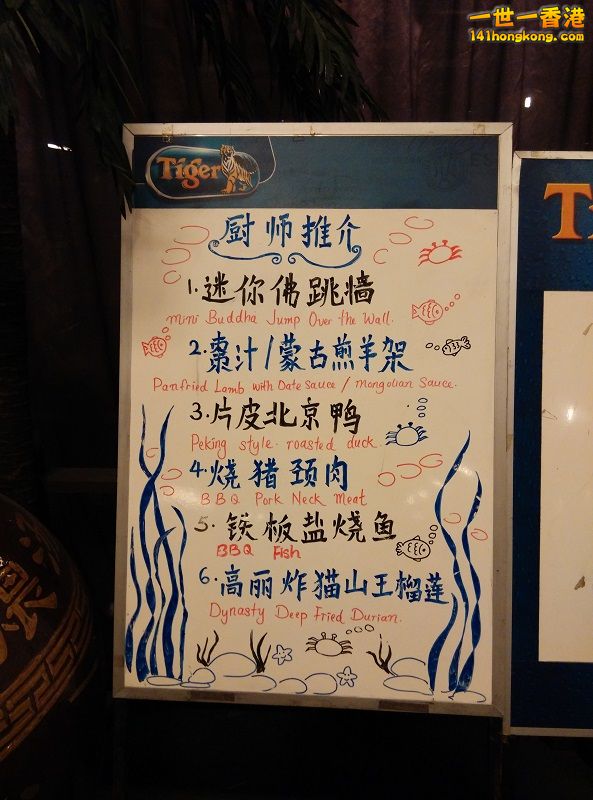 一世一香港
141hongkong.com
Tiger
厨师推介
1.迷你佛跳墙
mini Buddha Jump Over the Wall.
2.棗汁/蒙古煎羊架
Panfried Lamb with Date sauce / Mongolian Sauce.
3.片皮北京鸭
Peking style roasted duck
4.烧猪颈肉
BBQ Pork Neck Meat
5.铁板盐烧鱼
BBQ Fish
6.高丽炸猫山王榴莲
Dynasty Deep Fried Durian.